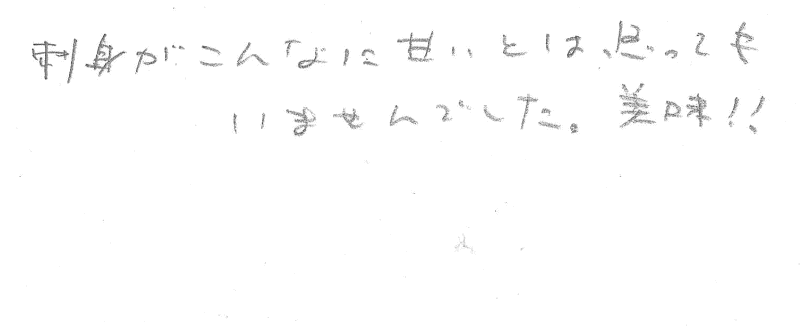 刺身がこんなに甘いとは、思っても
いませんでした。美味!!